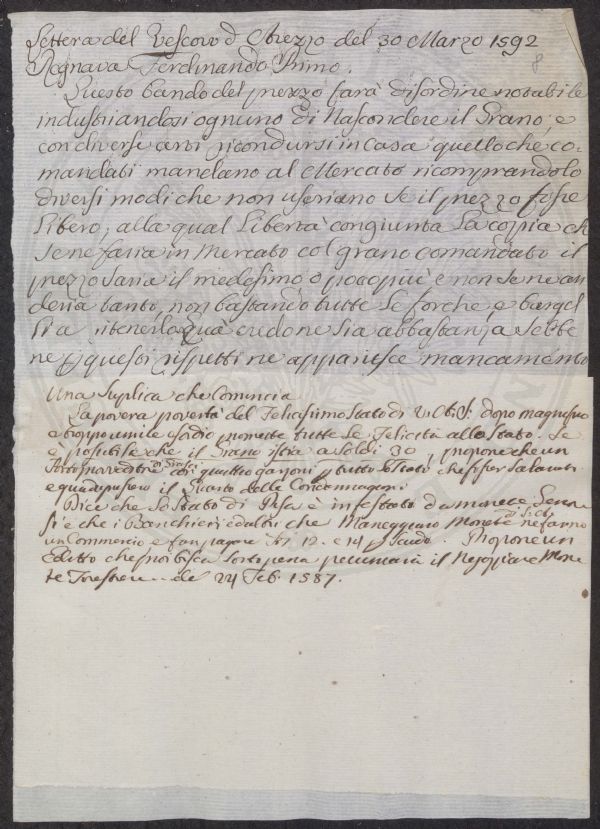 Lettera del Vescovo d Arezzo del 30 Marzo 1592
8
Regnava Ferdinando Primo.
Questo bando del prezzo farà disordine notabile
industriandosi ognuno di Nascondere il Grano, e
con diverse arti ricondursi in casa quello che co-
mandati mandano al Mercato ricomprandolo
diversi modi che non useriano se il prezzo fosse
Libero, alla qual Libertà congiunta La copia ch
se ne faria in Mercato col grano comandato il
prezzo saria il medesimo o poco più e non se ne an
deria tanto, non bastando tutte Le forche, e bargel
li a ritenerlo quà credone sia abbastanza sebbe
ne p questi rispetti ne apparisce mancamento
Una Suplica che Comincia
La povera povertà del Felicissimo Stato di V. Alt. S. dopo magnifico
e troppo umile esordio promette tutte Le Felicità allo Stato. Se
è possibile che il Grano stia a Soldi 30, propone che un
quattro garzoni p tutto lo Stato che
e il Quarto delle Condennagioni
Dice che Lo Stato di Pisa è infestato da monete
si è che i Banchieri ed altri che Maneggiano Monete di S. Alt. ne fanno
un Commercio e fan pagare 12. e 14 p Scudo. Propone un
Editto che proibisca sotto pena pecuniaria il Negoziare Mone
te Forestiere del 24 Feb. 1587.